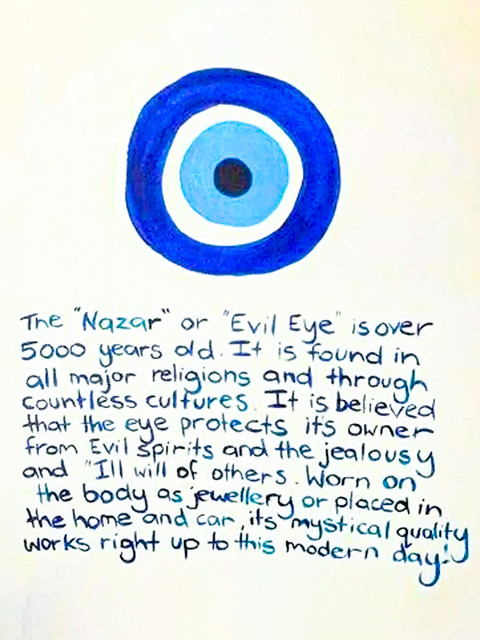 The "Nazar" or "Evil Eye" is over
5000 years old. It is found in
all major religions and through
countless cultures. It is believed
that the eye protects its owner
from Evil spirits and the jealousy
and "Ill will of others. Worn on
the body as jewellery or placed in
the home and car, its mystical quality
works right up to this modern day!